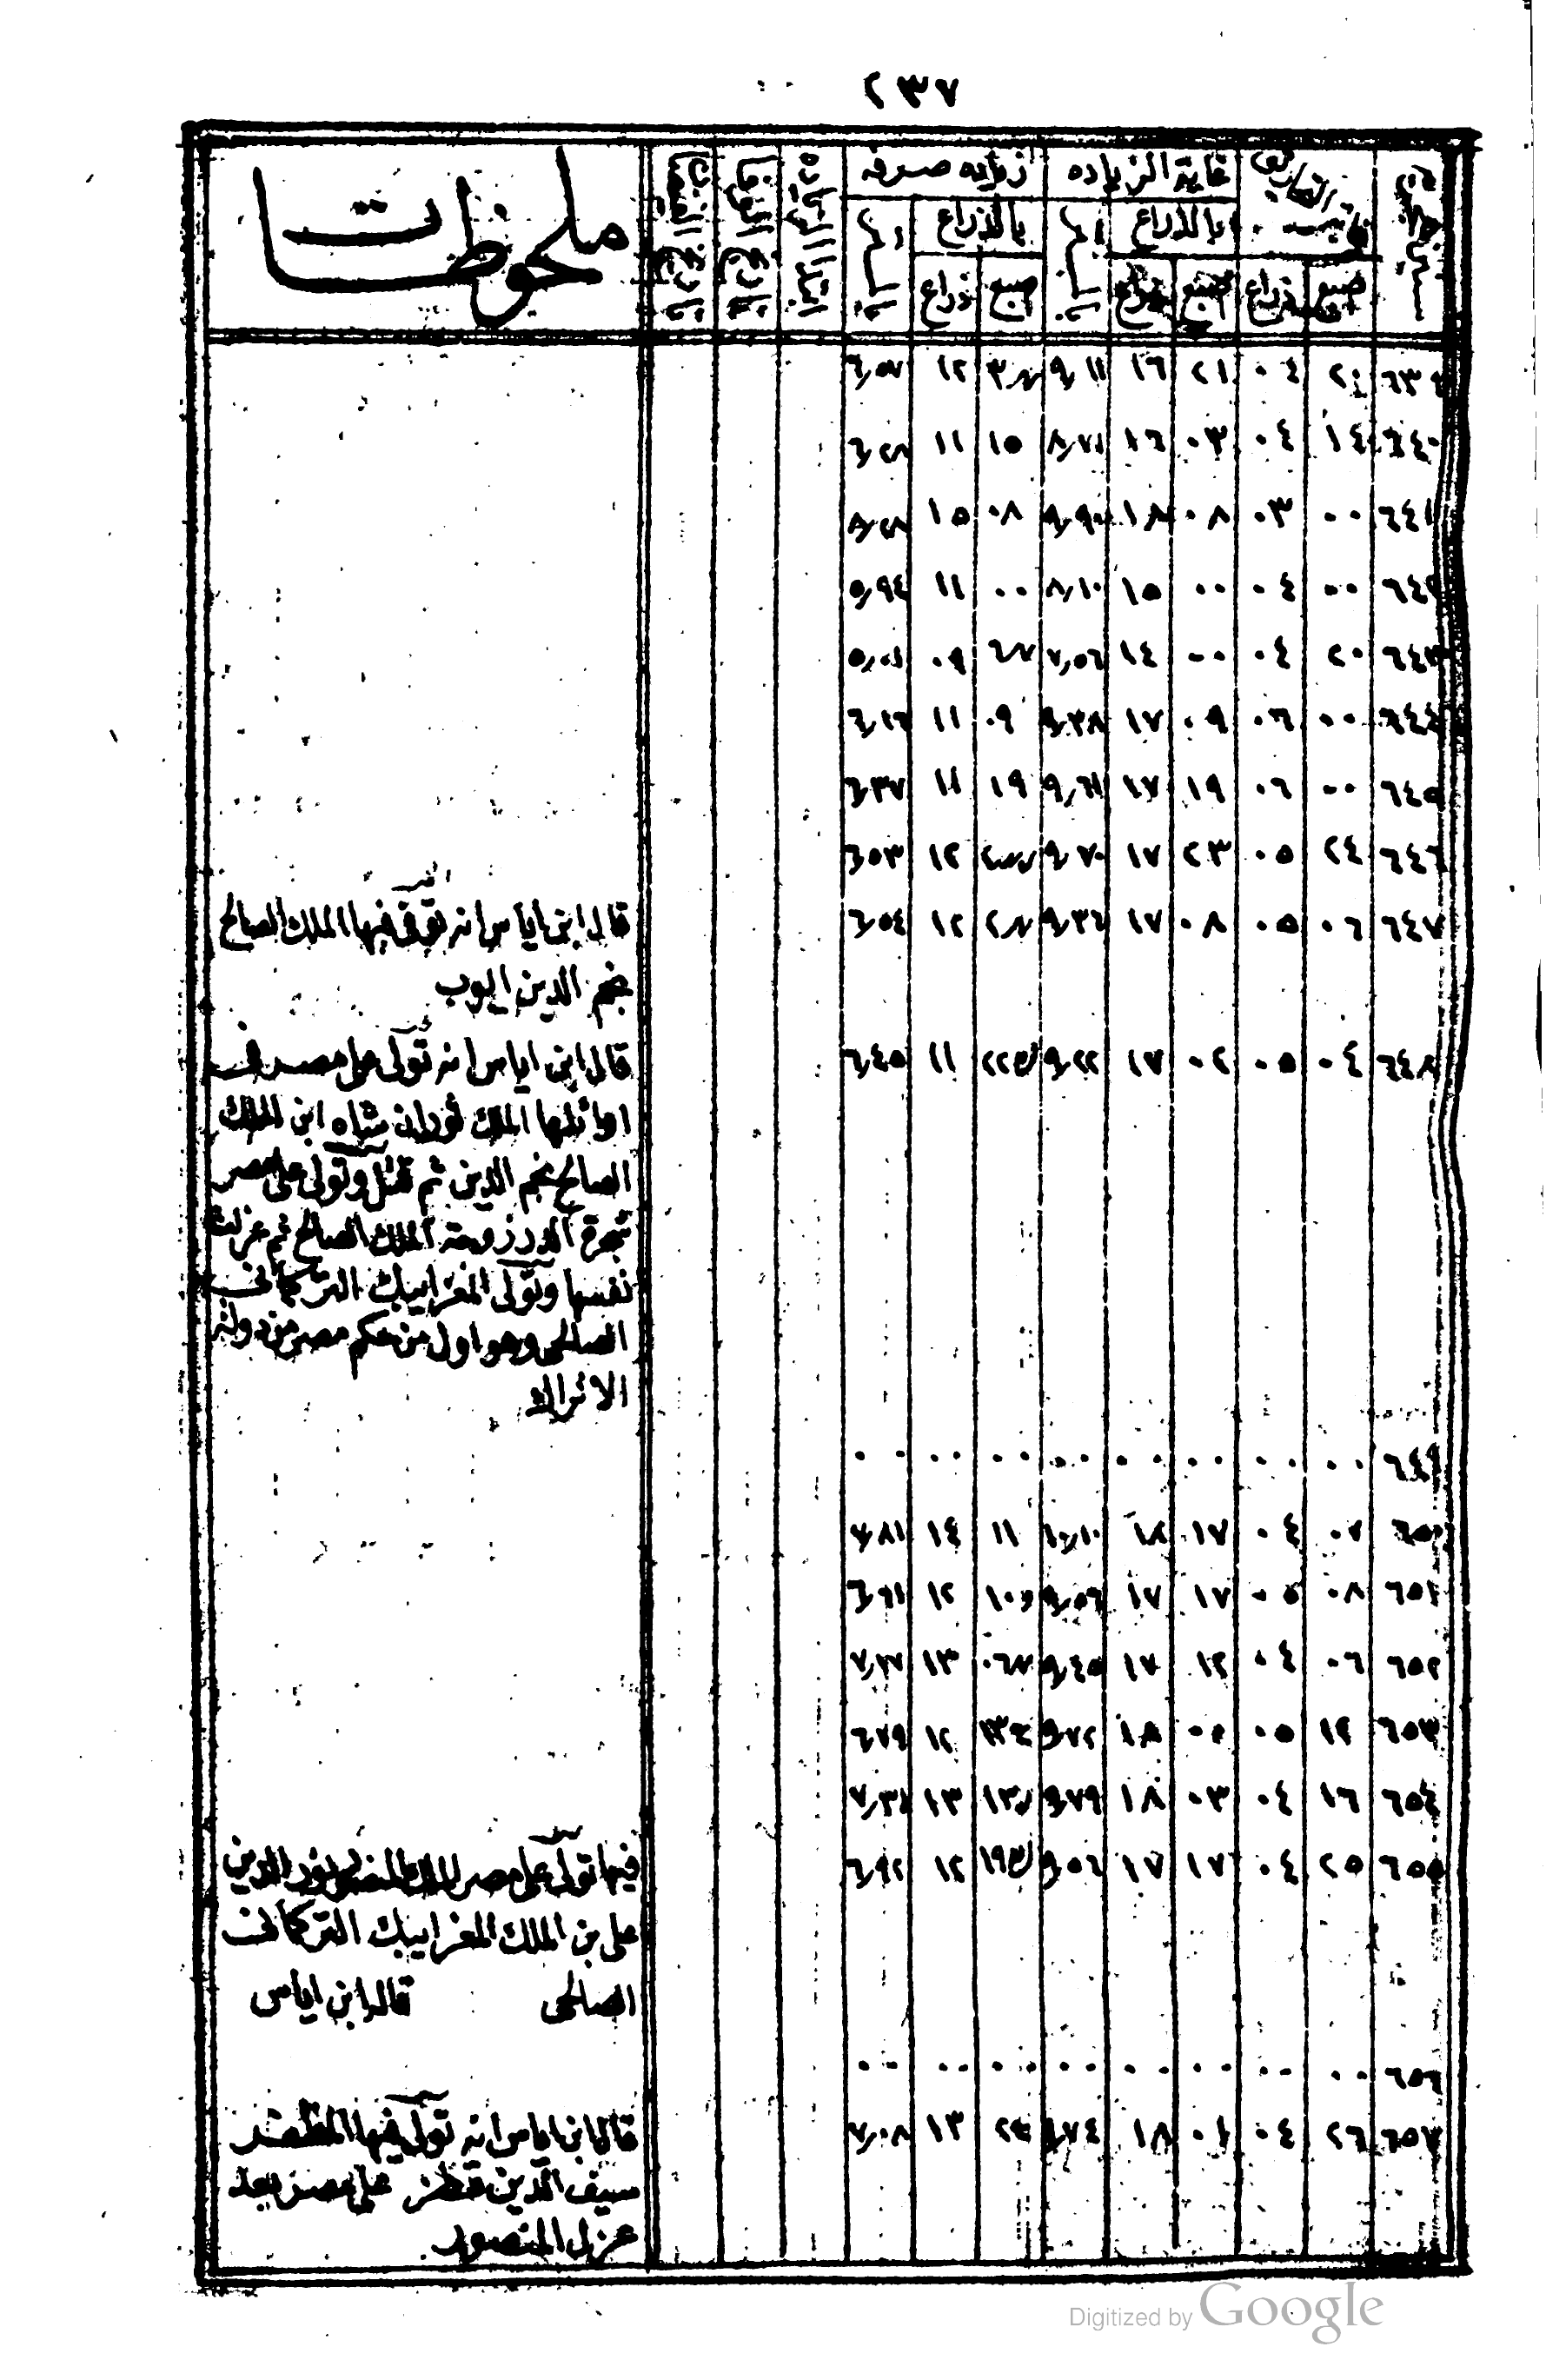 ٢٣٧
غاية الزياده
زياده صرفه
بالذراع
بالذراع
اصبع ذراع اصبع ذراع اصبع ذراع
ملحوظات
٢١ ١٦ ١٢ ٦٫٥٧
٦٤٠ ١٤ ٠٤ ٠٣ ١٦ ٨٫٧١ ١٥ ١١ ٦٫٢٨
٦٤١ ٠٠ ٠٣ ٠٨ ١٨ ٩٫٩٠ ٠٨ ١٥ ٨٫٢٨
٦٤٢ ٠٠ ٠٤ ٠٠ ١٥ ٨٫١٠ ٠٠ ١١ ٥٫٩٤
٦٤٣ ٢٠ ٠٤ ٠٠ ١٤ ٧٫٥٦ ٠٩
٦٤٤ ٠٠ ٠٦ ٠٩ ١٧ ٩٫٣٨ ٠٩ ١١ ٦٫١٦
٦٤٥ ٠٠ ٠٦ ١٩ ١٧ ١٩ ١١ ٦٫٣٧
٦٤٦ ٢٤ ٠٥ ٢٣ ١٧ ٩٫٧٠ ١٢ ٦٫٥٣
٦٤٧ ٠٦ ٠٥ ٠٨ ١٧ ٩٫٣٦ ١٢ ٦٫٥٤
قال ابن اياس انه توفى فيها الملك الصالح
نجم الدين ايوب
٦٤٨ ٠٤ ٠٥ ٠٢ ١٧ ٩٫٢٢ ١١ ٦٫٤٥
قال ابن اياس انه تولى على مصر فى
اوائلها الملك توران شاه ابن الملك
الصالح نجم الدين ثم قتل وتولى على مصر
شجرة الدر زوجة الملك الصالح ثم عزلت
نفسها وتولى المعز ايبك التركمانى
الصالحى وهو اول من حكم مصر من دولة
الاتراك
٦٤٩ ٠٠ ٠٠ ٠٠ ٠٠ ٠٠ ٠٠ ٠٠ ٠٠
٦٥٠ ٠٧ ٠٤ ١٧ ١٨ ١٠٫١٠ ١١ ١٤ ٧٫٨١
٦٥١ ٠٨ ٠٥ ١٧ ١٧ ٩٫٥٦ ١٢ ٦٫٦١
٦٥٢ ٠٦ ٠٤ ١٢ ١٧ ٩٫٤٥ ١٣ ٧٫٢٧
٦٥٣ ١٢ ٠٥ ١٨ ٩٫٧٢ ١٢ ٦٫٧٩
٦٥٤ ١٦ ٠٤ ٠٣ ١٨ ٩٫٧٩ ١٣
٦٥٥ ٢٥ ٠٤ ١٧ ١٧ ٩٫٥٦ ١٢ ٦٫٩٢
فيها تولى على مصر الملك المنصور نور الدين
على بن الملك المعز ايبك التركمانى
الصالحى قاله ابن اياس
٦٥٦ ٠٠ ٠٠ ٠٠ ٠٠ ٠٠ ٠٠ ٠٠ ٠٠
٦٥٧ ٢٦ ٠٤ ٠١ ١٨ ٩٫٧٤ ١٣ ٧٫٠٨
قال ابن اياس انه تولى فيها المظفر
سيف الدين قطز على مصر بعد
عزل المنصور
Digitized by Google